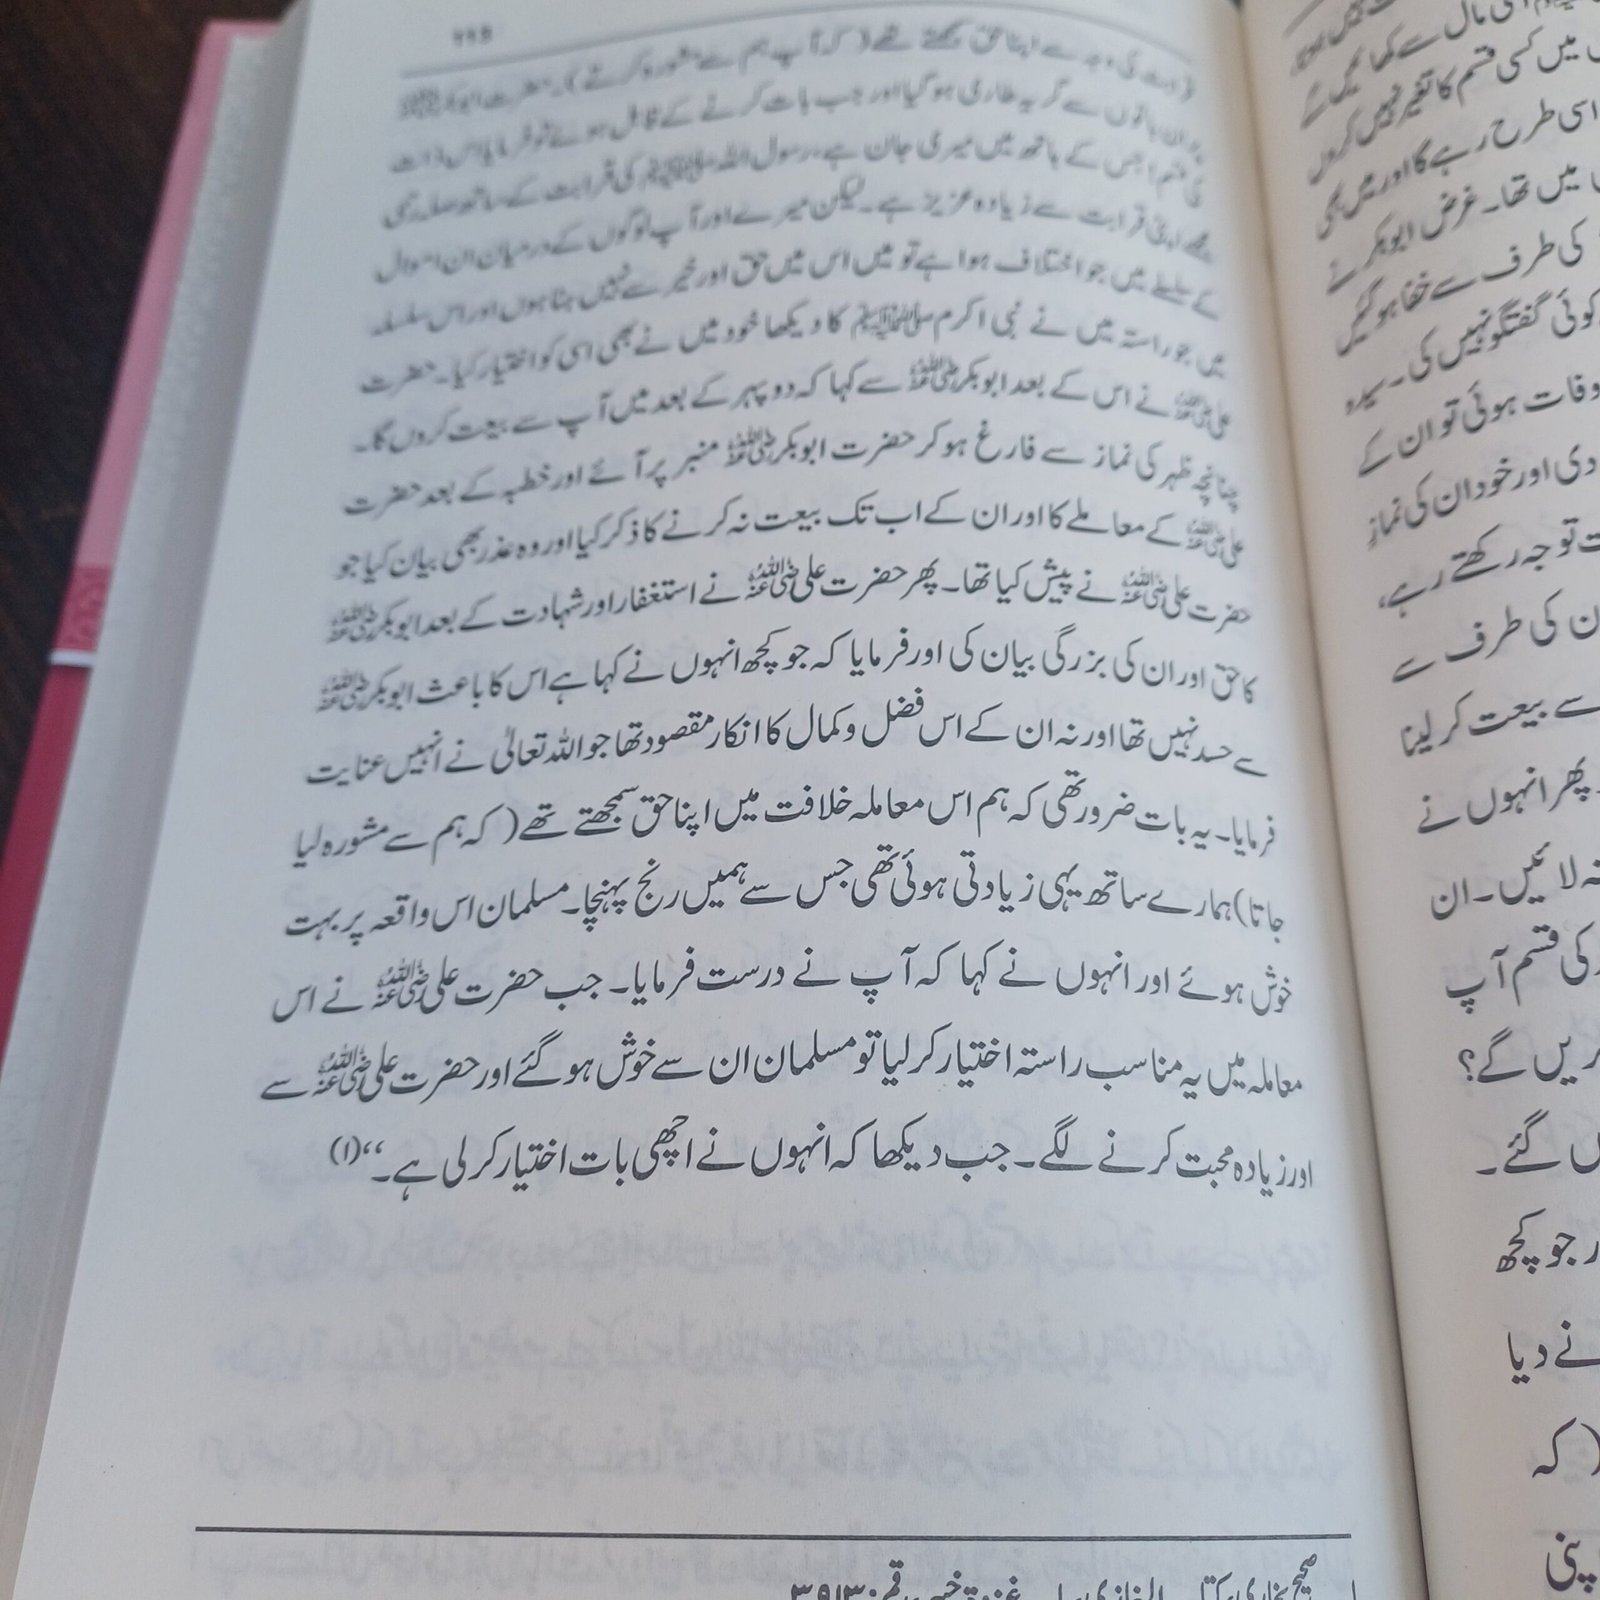 ۲۲۵
قرابت کی وجہ سے اپنا حق سمجھتے تھے (کہ آپ ہم سے مشورہ کرتے)۔ حضرت ابوبکر رضی اللہ عنہ
پر ان باتوں سے گریہ طاری ہو گیا اور جب بات کرنے کے قابل ہوئے تو فرمایا اس ذات
کی قسم! جس کے ہاتھ میں میری جان ہے، رسول اللہ صلی اللہ علیہ وسلم کی قرابت کے ساتھ صلہ رحمی
مجھے اپنی قرابت سے زیادہ عزیز ہے۔ لیکن میرے اور آپ لوگوں کے درمیان ان اموال
کے سلسلے میں جو اختلاف ہوا ہے تو میں اس میں حق اور خیر سے نہیں ہٹا ہوں اور اس سلسلہ
میں جو راستہ میں نے نبی اکرم صلی اللہ علیہ وسلم کا دیکھا خود میں نے بھی اسی کو اختیار کیا۔ حضرت
علی رضی اللہ عنہ نے اس کے بعد ابوبکر رضی اللہ عنہ سے کہا کہ دوپہر کے بعد میں آپ سے بیعت کروں گا۔
چنانچہ ظہر کی نماز سے فارغ ہو کر حضرت ابوبکر رضی اللہ عنہ منبر پر آئے اور خطبہ کے بعد حضرت
علی رضی اللہ عنہ کے معاملے کا اور ان کے اب تک بیعت نہ کرنے کا ذکر کیا اور وہ عذر بھی بیان کیا جو
حضرت علی رضی اللہ عنہ نے پیش کیا تھا۔ پھر حضرت علی رضی اللہ عنہ نے استغفار اور شہادت کے بعد ابوبکر رضی اللہ عنہ
کا حق اور ان کی بزرگی بیان کی اور فرمایا کہ جو کچھ انہوں نے کہا ہے اس کا باعث ابوبکر رضی اللہ عنہ
سے حسد نہیں تھا اور نہ ان کے اس فضل و کمال کا انکار مقصود تھا جو اللہ تعالیٰ نے انہیں عنایت
فرمایا۔ یہ بات ضرور تھی کہ ہم اس معاملہ خلافت میں اپنا حق سمجھتے تھے (کہ ہم سے مشورہ لیا
جاتا) ہمارے ساتھ یہی زیادتی ہوئی تھی جس سے ہمیں رنج پہنچا۔ مسلمان اس واقعہ پر بہت
خوش ہوئے اور انہوں نے کہا کہ آپ نے درست فرمایا۔ جب حضرت علی رضی اللہ عنہ نے اس
معاملہ میں یہ مناسب راستہ اختیار کر لیا تو مسلمان ان سے خوش ہو گئے اور حضرت علی رضی اللہ عنہ سے
اور زیادہ محبت کرنے لگے۔ جب دیکھا کہ انہوں نے اچھی بات اختیار کر لی ہے۔‘‘(۱)
۱ صحیح بخاری، کتاب المغازی، باب غزوۃ خیبر، رقم: ۳۹۱۳
مال سے کھا
میں کسی قسم کا تغیر نہیں کروں
اسی طرح رہے گا اور میں بھی
میں تھا۔ غرض ابوبکر نے
کی طرف سے خفا ہو گئیں
کوئی گفتگو نہیں کی۔ سیدہ
وفات ہوئی تو ان کے
دی اور خود ان کی نماز
توجہ رکھتے رہے،
ان کی طرف سے
سے بیعت کر لینا
پھر انہوں نے
نہ لائیں۔ ان
کی قسم آپ
کریں گے؟
گئے۔
جو کچھ
نے دیا
(کہ
اپنی